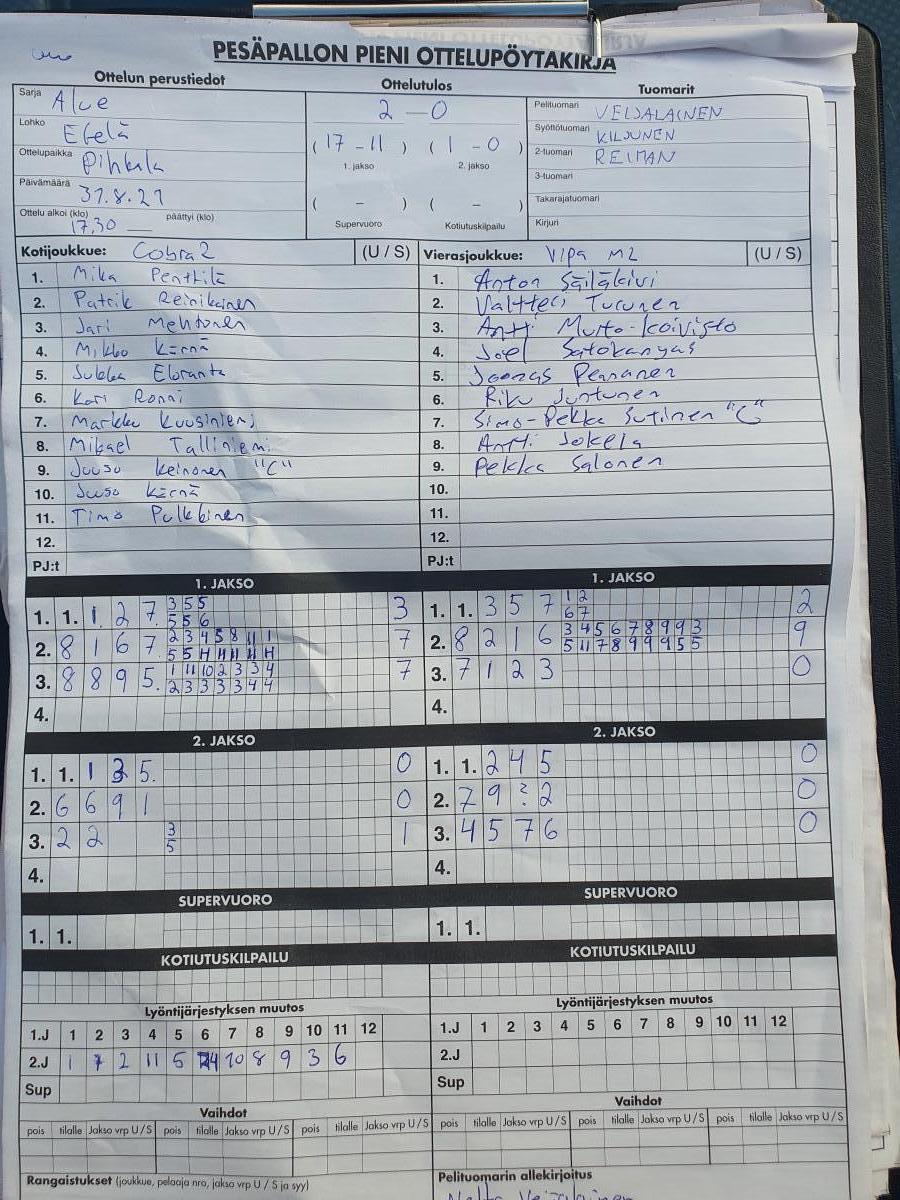 PESÄPALLON PIENI OTTELUPÖYTÄKIRJA
Ottelun perustiedot
Sarja Alue
Lohko Etelä
Ottelupaikka Pihkala
Päivämäärä 31.8.21
Ottelu alkoi (klo) 17,30 päättyi (klo)
Ottelutulos
2 – 0
( 17 – 11 ) ( 1 – 0 )
1. jakso 2. jakso
( – ) ( – )
Supervuoro Kotiutuskilpailu
Tuomarit
Pelituomari VEIJALAINEN
Syöttötuomari KILJUNEN
2-tuomari REIMAN
3-tuomari
Takarajatuomari
Kirjuri
Kotijoukkue: Cobra 2 (U / S)
1. Mika Penttilä
2. Patrik Reinikainen
3. Jari Mehtonen
4. Mikko Kärnä
5. Jukka Eloranta
6. Kari Ronni
7. Markku Kuusiniemi
8. Mikael Talliniemi
9. Juuso Keinonen "C"
10. Juuso Kärnä
11. Timo Pulkkinen
12.
PJ:t
Vierasjoukkue: VIPA M2 (U / S)
1. Anton Säiläkivi
2. Valtteri Turunen
3. Antti Muito-Koivisto
4. Joel Satokangas
5. Joonas Pennanen
6. Riku Juntunen
7. Simo-Pekka Sutinen "C"
8. Antti Jokela
9. Pekka Salonen
10.
11.
12.
PJ:t
1. JAKSO
1. 1. 1 2 7. 3 5 5 3
5 5 6
2. 8 1 6 7. 2 3 4 5 8 11 1 7
5 5 11 11 11 11
3. 8 8 9 5. 1 11 10 2 3 3 4 7
2 3 3 3 3 4 4
4.
1. JAKSO
1. 1. 3 5 7 1 2 2
6 7
2. 8 2 1 6 3 4 5 6 7 8 9 9 3 9
5 11 7 8 9 9 9 5 5
3. 7 1 2 3 0
4.
2. JAKSO
1. 1. 1 3 5. 0
2. 6 6 9 1 0
3. 2 2 3 1
5
4.
2. JAKSO
1. 1. 2 4 5 0
2. 7 9 ? 2 0
3. 4 5 7 6 0
4.
SUPERVUORO
1. 1.
SUPERVUORO
1. 1.
KOTIUTUSKILPAILU
KOTIUTUSKILPAILU
Lyöntijärjestyksen muutos
1.J 1 2 3 4 5 6 7 8 9 10 11 12
2.J 1 7 2 11 5 4 10 8 9 3 6
Sup
Lyöntijärjestyksen muutos
1.J 1 2 3 4 5 6 7 8 9 10 11 12
2.J
Sup
Vaihdot
pois tilalle Jakso vrp U / S pois tilalle Jakso vrp U / S pois tilalle Jakso vrp U / S
Vaihdot
pois tilalle Jakso vrp U / S pois tilalle Jakso vrp U / S pois tilalle Jakso vrp U / S
Rangaistukset (joukkue, pelaaja nro, jakso vrp U / S ja syy)
Pelituomarin allekirjoitus